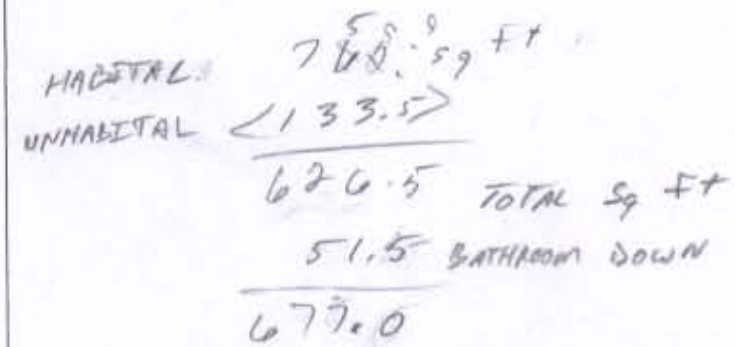 HABITAL. 760. sq Ft
UNHABITAL <133.5>
626.5 TOTAL Sq Ft
51.5 BATHROOM DOWN
677.0